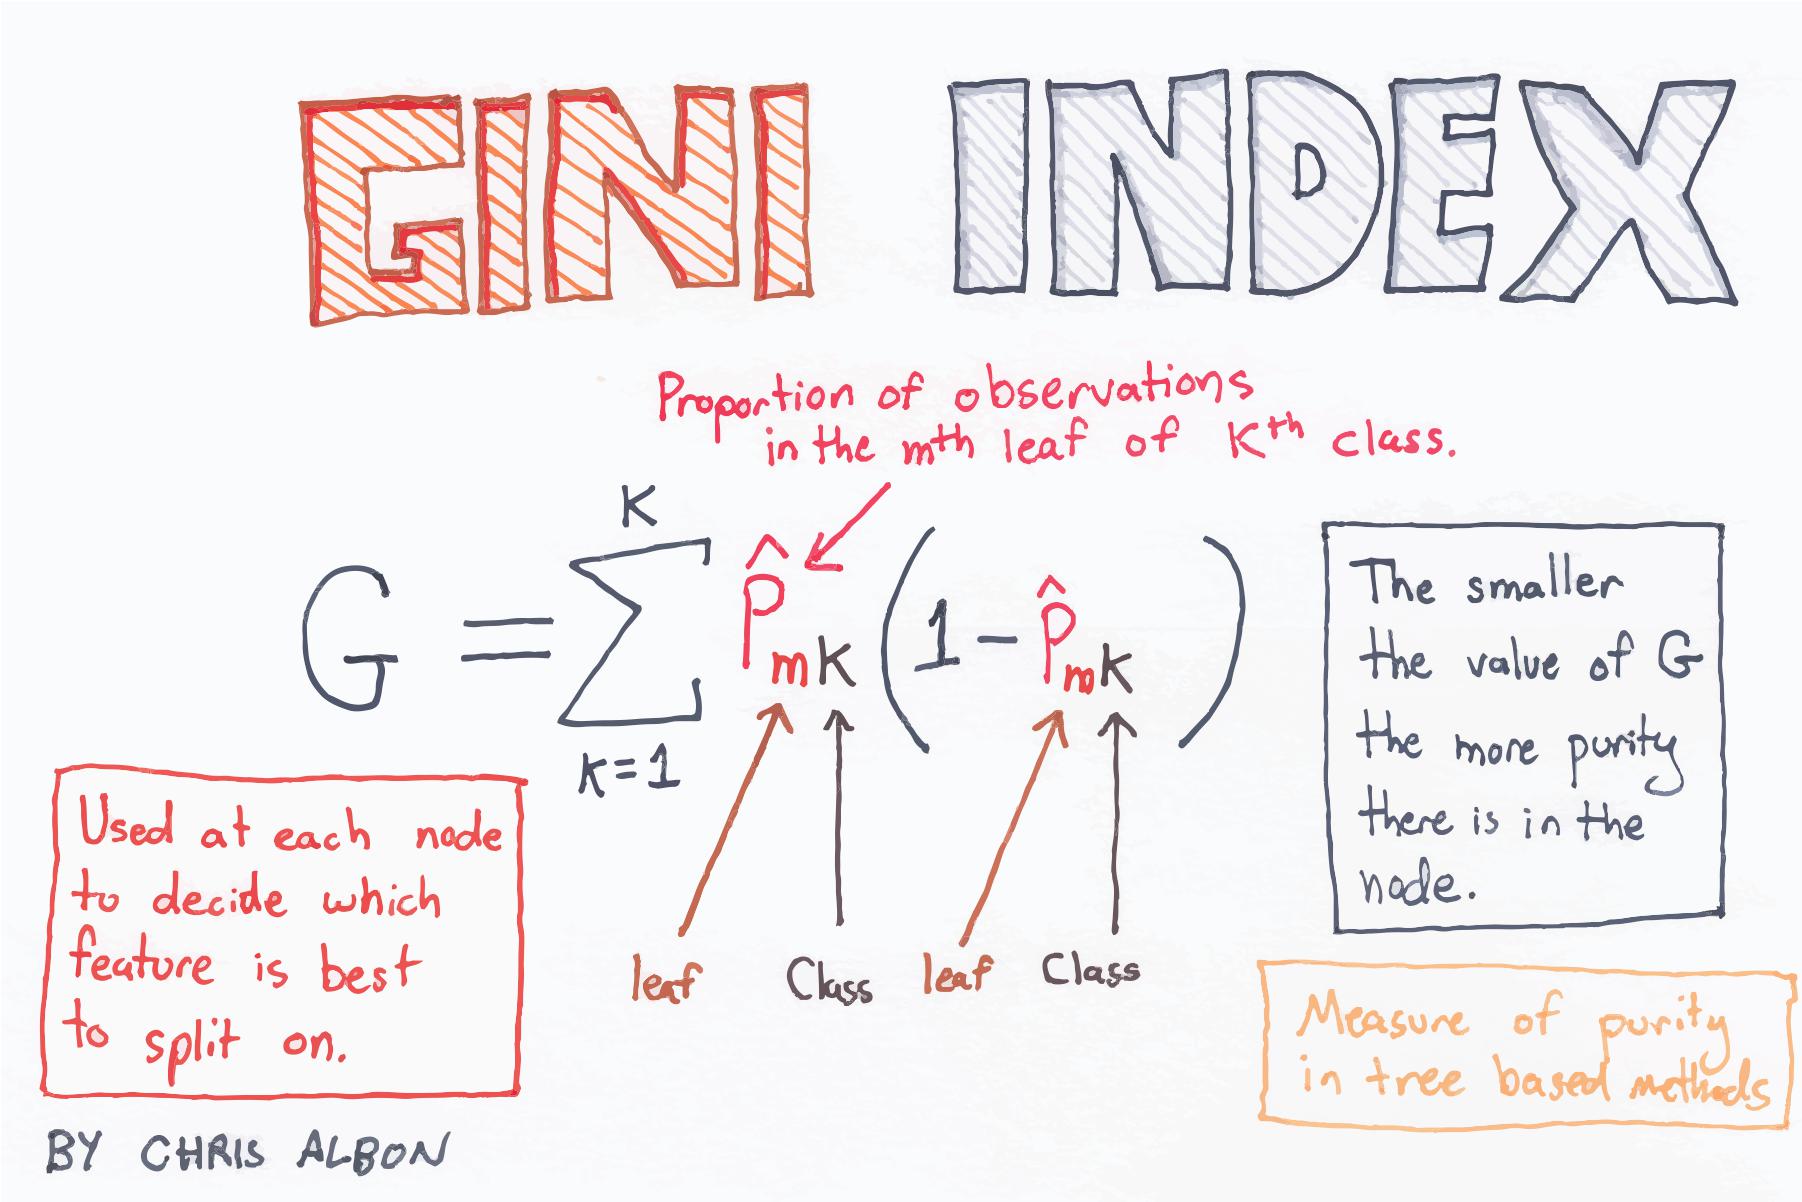 GINI INDEX
Proportion of observations
in the mth leaf of Kth class.
K
G = Σ P̂mk (1 - P̂mk)
k=1
leaf Class leaf Class
The smaller
the value of G
the more purity
there is in the
node.
Used at each node
to decide which
feature is best
to split on.
Measure of purity
in tree based methods
BY CHRIS ALBON